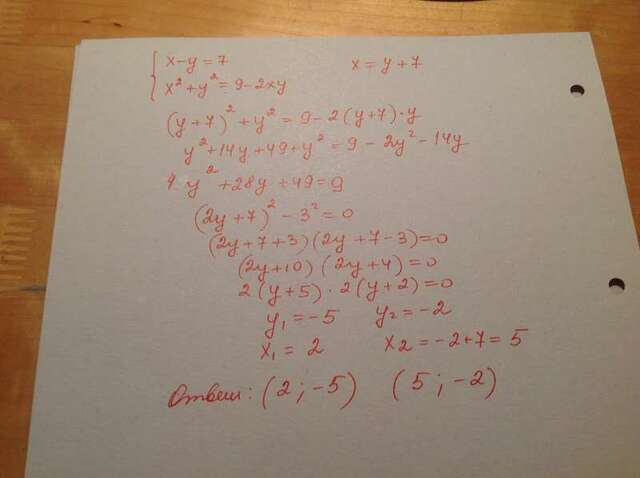 x-y=7 x=y+7
x²+y²=9-2xy
(y+7)²+y²=9-2(y+7)·y
y²+14y+49+y²=9-2y²-14y
4y²+28y+49=9
(2y+7)²-3²=0
(2y+7+3)(2y+7-3)=0
(2y+10)(2y+4)=0
2(y+5)·2(y+2)=0
y₁=-5 y₂=-2
x₁=2 x₂=-2+7=5
Ответ: (2;-5) (5;-2)